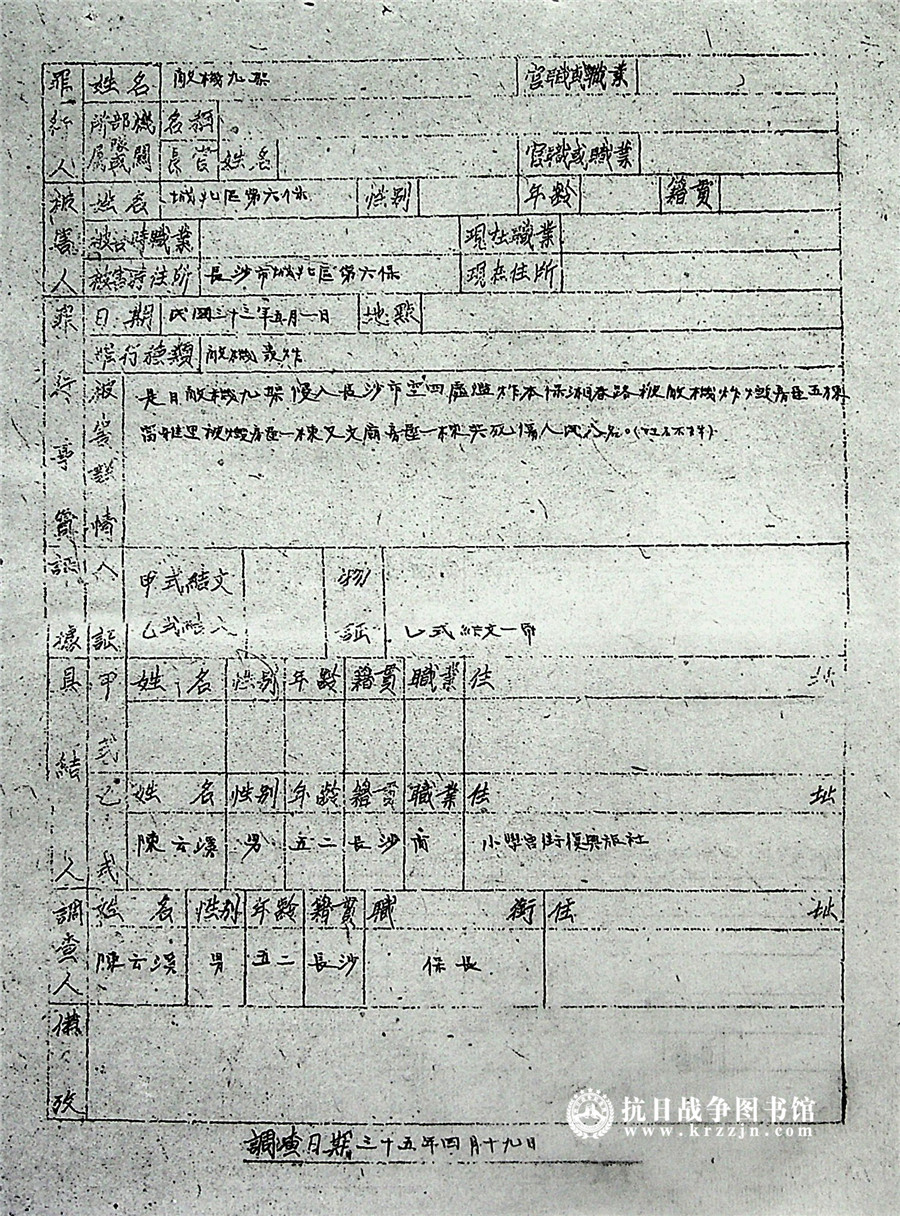 罪行人 姓名 敵機九架 官職或職業
所屬部隊或機關 名稱
長官姓名 官職或職業
被害人 姓名 城北区第六保 性别 年齡 籍貫
被害時職業 現在職業
被害時住所 長沙市城北区第六保 現在住所
罪行事實 日期 民國三十三年五月一日 地點
罪行種類 敵機轟炸
被害詳情 是日敵機九架侵入長沙市空四處濫炸本保湘春路被敵機炸燬房屋五棟
雅里被燬房屋一棟又文廟房屋一棟炸死傷人民名。(姓名不詳)
證據 人証 甲式結文
乙式結文 物証 乙式結文一帋
具結人 甲式 姓名 性别 年齡 籍貫 職業 住址
乙式 姓名 性别 年齡 籍貫 職業 住址
陳云溪 男 五二 長沙 商 小學宮街復興旅社
調查人 姓名 性别 年齡 籍貫 職銜 住址
陳云溪 男 五二 長沙 保長
備攷
調查日期 三十五年四月十九日
抗日战争图书馆
www.krzzjn.com